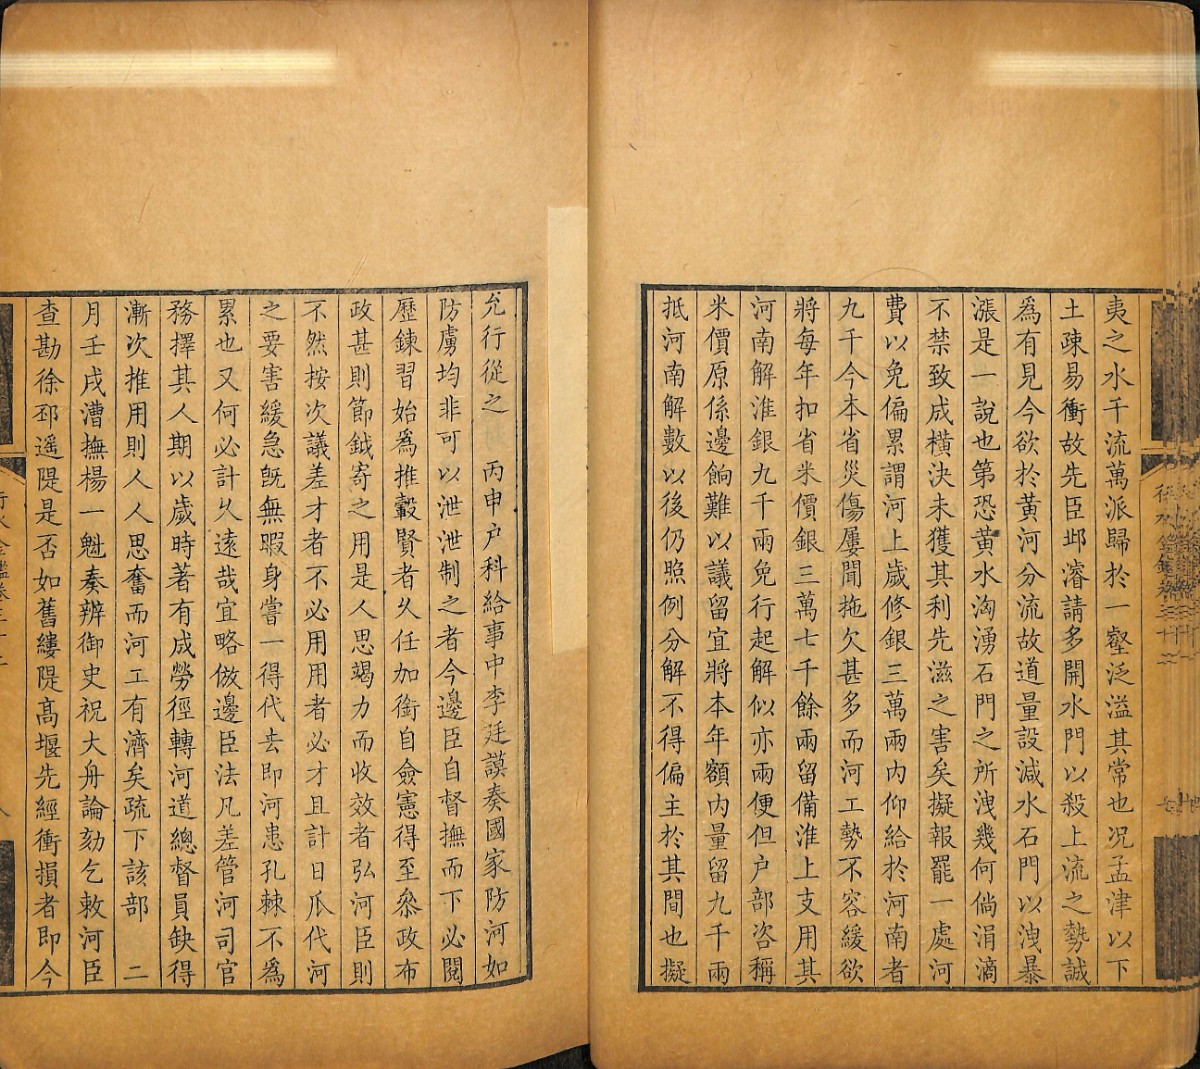 夷之水千流萬派歸於一壑泛溢其常也况孟津以下
土疎易衝故先臣邶濬請多開水門以殺上流之勢誠
爲有見今欲於黃河分流故道量設減水石門以洩暴
漲是一說也第恐黃水洶湧石門之所洩幾何倘涓滴
不禁致成橫决未獲其利先滋之害矣擬報罷一處河
費以免偏累謂河上歲修銀三萬兩内仰給於河南者
九千今本省災傷屢聞拖欠甚多而河工勢不容緩欲
將每年扣省米價銀三萬七千餘兩留備淮上支用其
河南解淮銀九千兩免行起解似亦兩便但户部咨稱
米價原係邊餉難以議留宜將本年額内量留九千兩
抵河南解數以後仍照例分解不得偏主於其間也擬
允行從之 丙申户科給事中李廷謨奏國家防河如
防虜均非可以泄泄制之者今邊臣自督撫而下必閱
歷鍊習始爲推轂賢者久任加銜自僉憲得至叅政布
政甚則節鉞寄之用是人思竭力而收效者弘河臣則
不然按次議差才者不必用用者必才且計日瓜代河
之要害緩急旣無暇身嘗一得代去即河患孔棘不爲
累也又何必計久遠哉宜略倣邊臣法凡差管河司官
務擇其人期以歲時著有成勞徑轉河道總督員缺得
漸次推用則人人思奮而河工有濟矣疏下該部 二
月壬戌漕撫楊一魁奏辨御史祝大舟論劾乞敕河臣
查勘徐邳遥隄是否如舊縷隄高堰先經衝損者即今